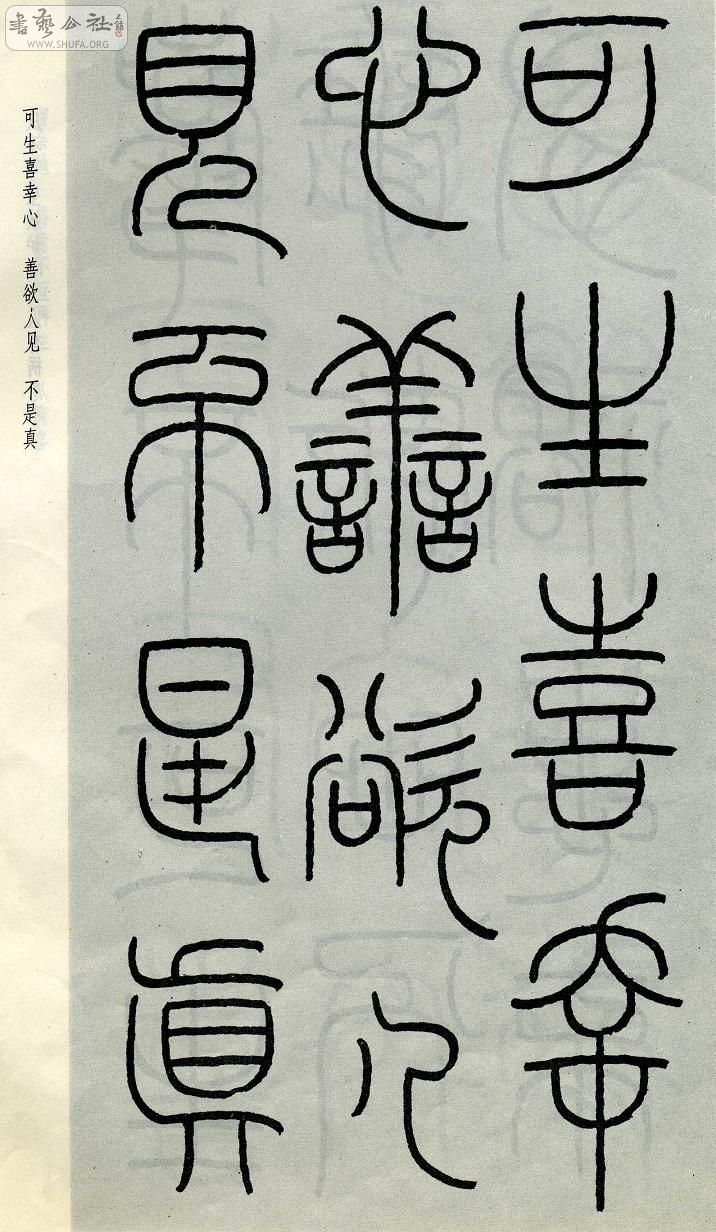 可生喜幸
心善欲人
見不是真
可生喜幸心 善欲人见 不是真
書藝公社
WWW.SHUFA.ORG